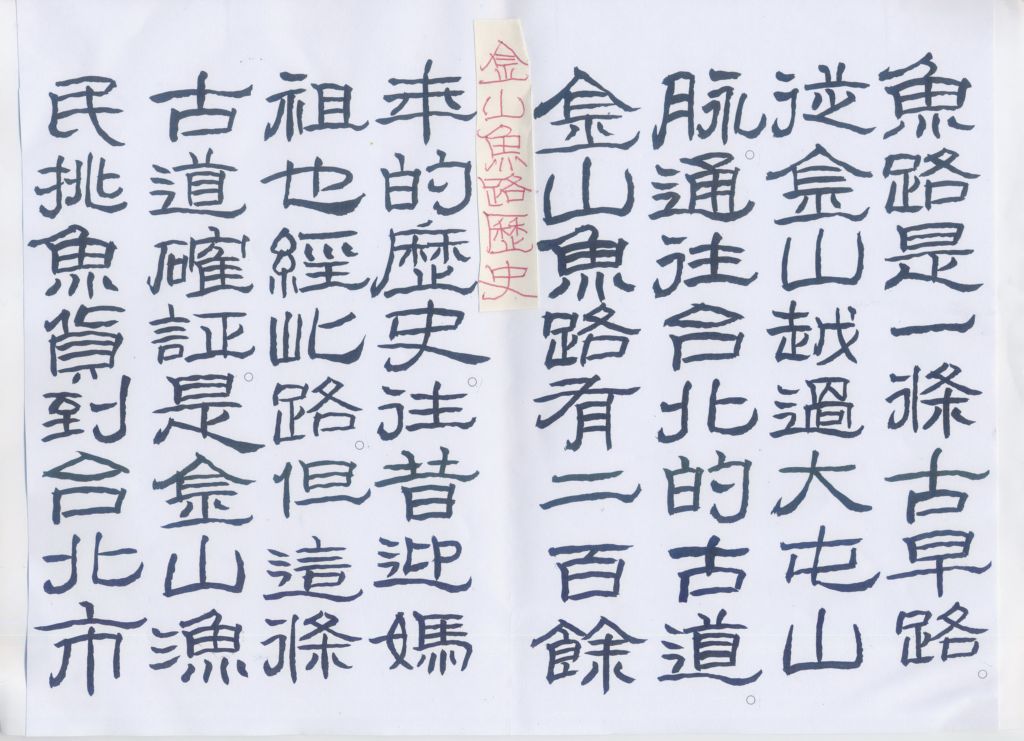 金山魚路歷史
魚路是一條古早路。
從金山越過大屯山
脉。通往台北的古道。
金山魚路有二百餘
年的歷史。往昔迎媽
祖也經此路。但這條
古道確証。是金山漁
民挑魚貨到台北市